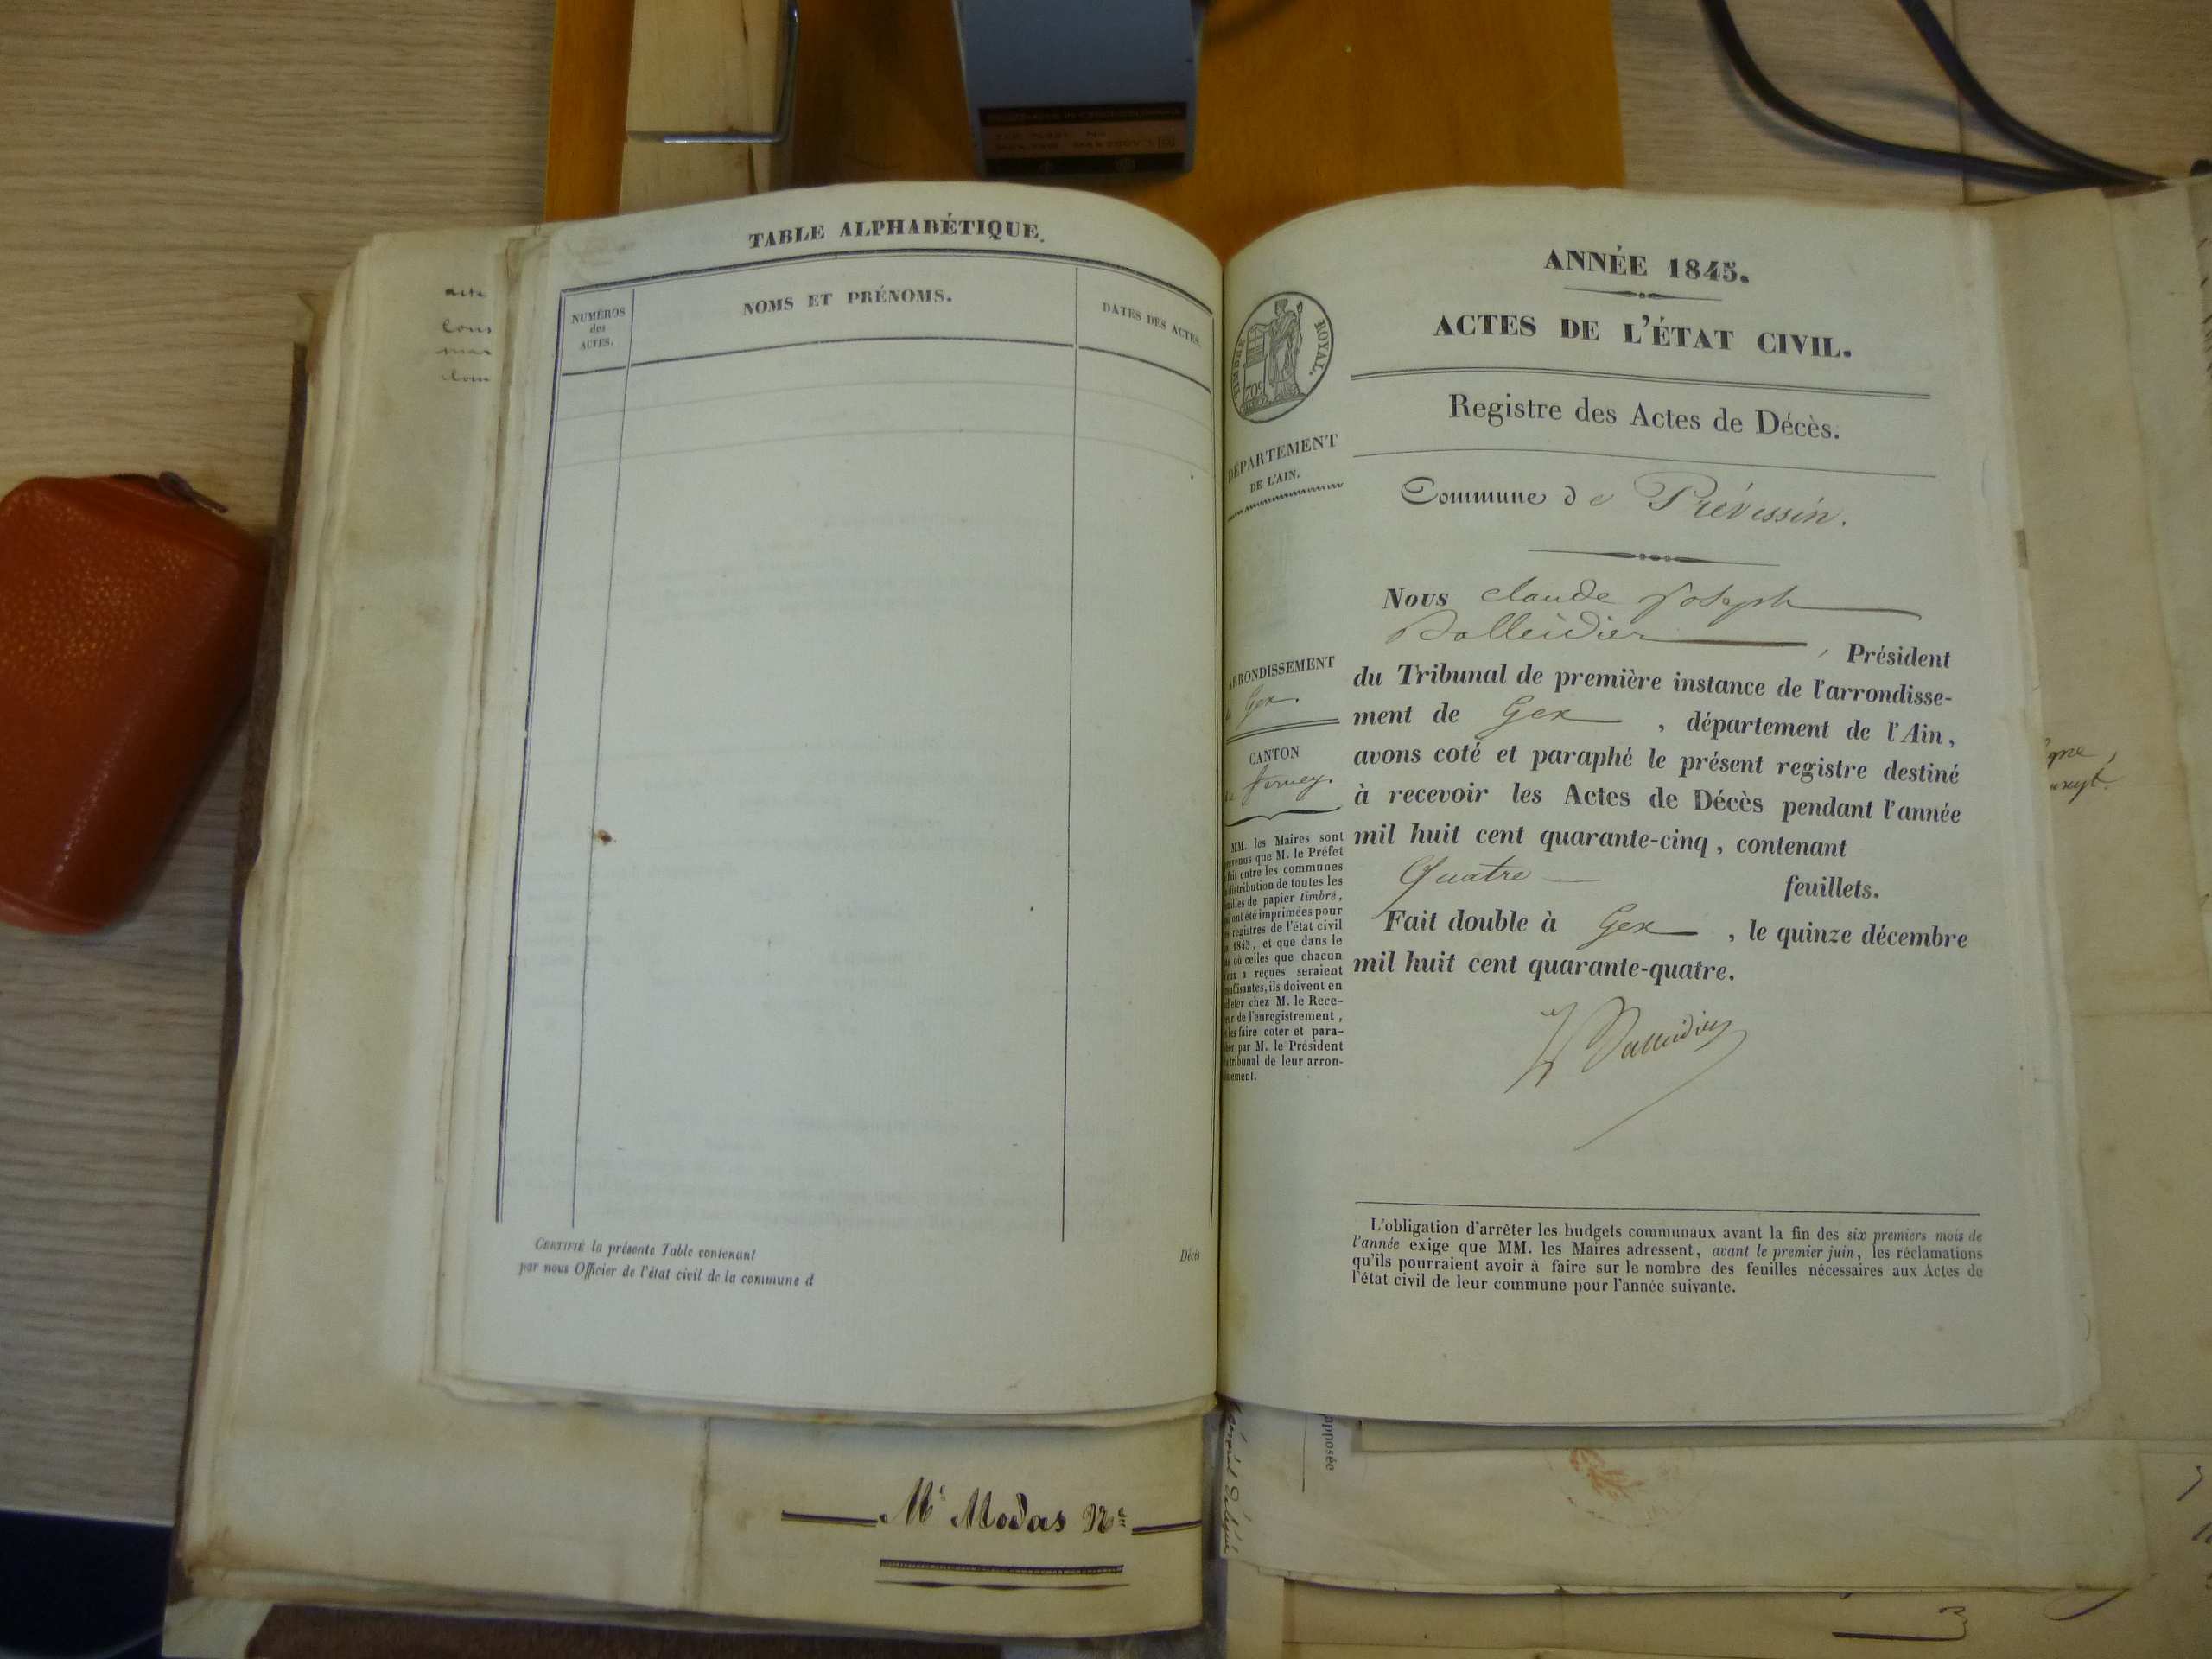 TABLE ALPHABÉTIQUE.
NUMÉROS
des
ACTES.
NOMS ET PRÉNOMS.
DATES DES ACTES.
CERTIFIÉ la présente Table contenant
par nous Officier de l'état civil de la commune d
Décès
Mᵉ Modas Nʳᵉ
ANNÉE 1845.
ACTES DE L'ÉTAT CIVIL.
TIMBRE ROYAL.
70ᶜ
Registre des Actes de Décès.
DÉPARTEMENT
DE L'AIN.
Commune de Prévessin.
Nous Claude Joseph
Balleidier, Président
du Tribunal de première instance de l'arrondisse-
ment de Gex, département de l'Ain,
avons coté et paraphé le présent registre destiné
à recevoir les Actes de Décès pendant l'année
mil huit cent quarante-cinq, contenant
Quatre feuillets.
Fait double à Gex, le quinze décembre
mil huit cent quarante-quatre.
Balleidier
ARRONDISSEMENT
Gex.
CANTON
ferney.
MM. les Maires sont
que M. le Préfet
fait entre les communes
distribution de toutes les
de papier timbré,
ont été imprimées pour
registres de l'état civil
1843, et que dans le
où celles que chacun
a reçues seraient
ils doivent en
chez M. le Rece-
de l'enregistrement,
les faire coter et para-
par M. le Président
tribunal de leur arron-
L'obligation d'arrêter les budgets communaux avant la fin des six premiers mois de
l'année exige que MM. les Maires adressent, avant le premier juin, les réclamations
qu'ils pourraient avoir à faire sur le nombre des feuilles nécessaires aux Actes de
l'état civil de leur commune pour l'année suivante.
apposée